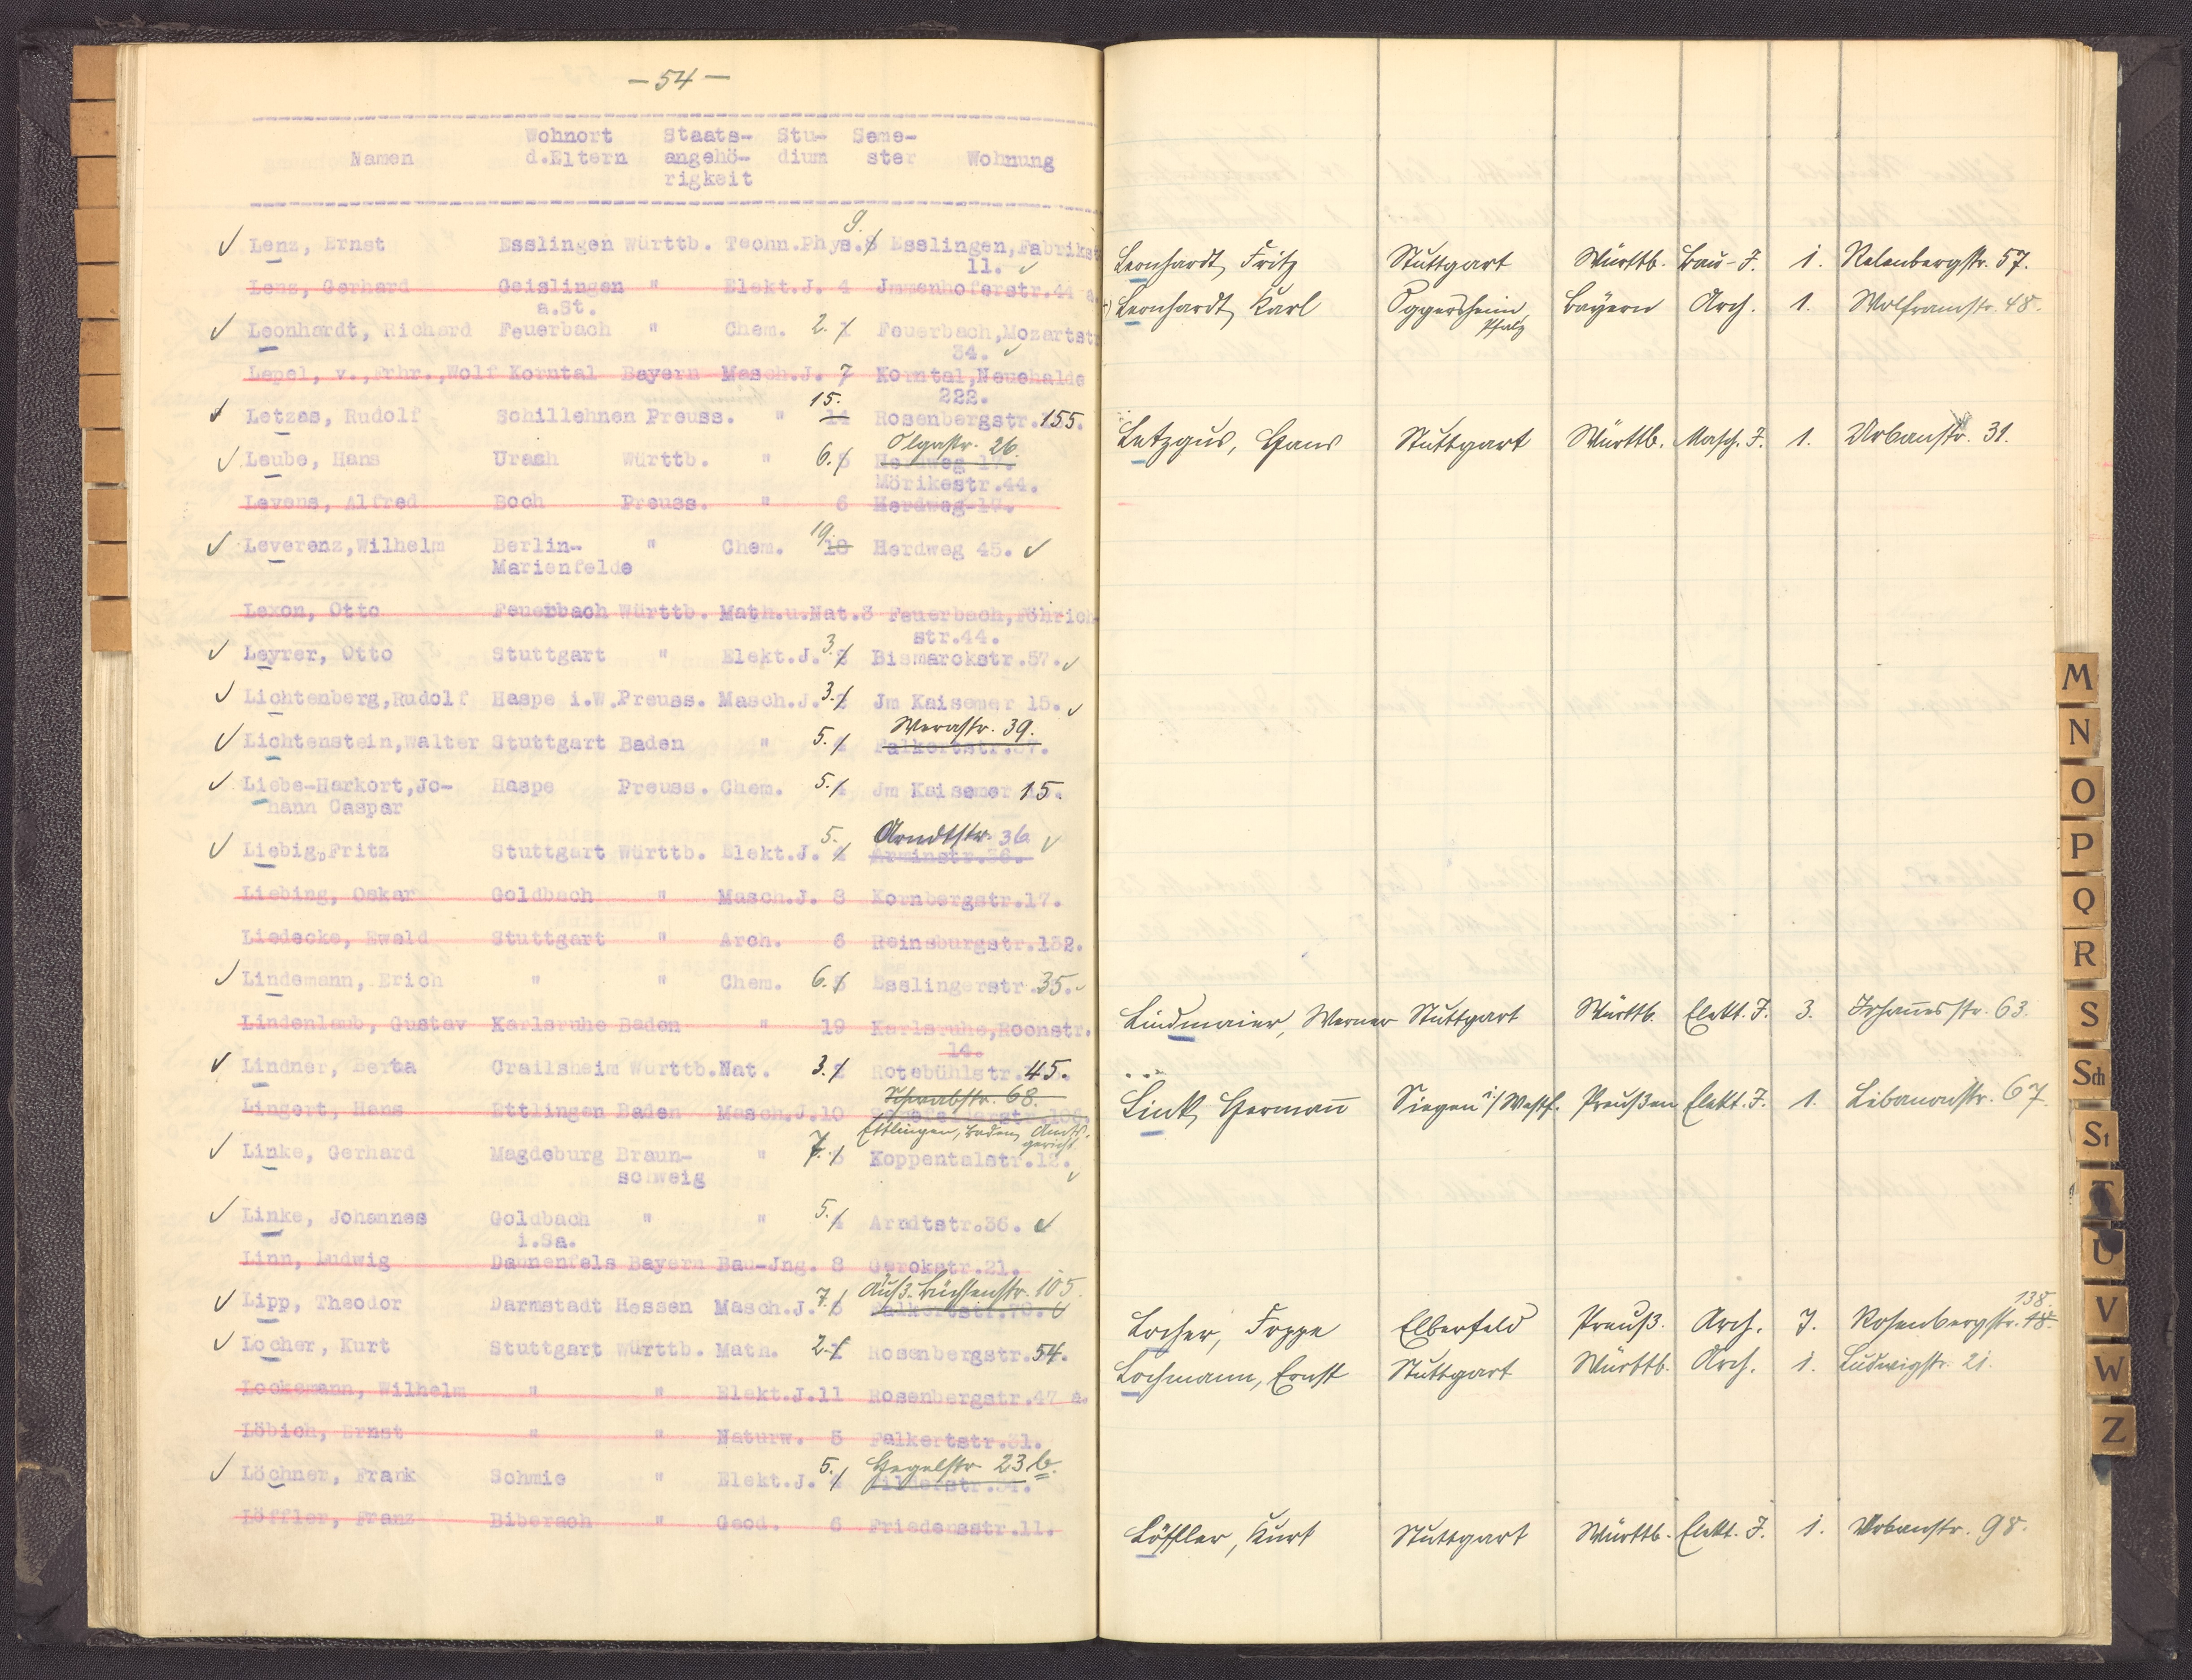 — 54 —
Namen Wohnort d.Eltern Staats-angehö-rigkeit Stu-dium Seme-ster Wohnung
9.
Lenz, Ernst Esslingen Württb. Techn.Phys. 8 Esslingen,Fabrikst
11.
Lenz, Gerhard Geislingen " Elekt.J. 4 Jmmenhoferstr.44 a.
a.St.
Leonhardt, Richard Feuerbach " Chem. 2. 1 Feuerbach,Mozartstr
34.
Lepel, v.,Frhr.,Wolf Korntal Bayern Masch.J. 7 Korntal,Neuehalde
222.
Letzas, Rudolf Schillehnen Preuss. " 15. 14 Rosenbergstr.155.
Olgastr. 26.
Leube, Hans Urach Württb. " 6. 5 Herdweg 17.
Mörikestr.44.
Levens, Alfred Boch Preuss. " 6 Herdweg 17.
Leverenz,Wilhelm Berlin- " Chem. 19. 18 Herdweg 45.
Marienfelde
Lexon, Otto Feuerbach Württb. Math.u.Nat.3 Feuerbach,Föhrich
str.44.
Leyrer, Otto Stuttgart " Elekt.J. 3. 2 Bismarckstr.57.
Lichtenberg,Rudolf Haspe i.W.Preuss. Masch.J. 3. 2 Jm Kaisemer 15.
Werastr. 39.
Lichtenstein,Walter Stuttgart Baden " 5. 4 Falkertstr.
Liebe-Harkort,Jo- Haspe Preuss. Chem. 5. 4 Jm Kaisemer 15.
hann Caspar
Arndtstr. 36
Liebig,Fritz Stuttgart Württb. Elekt.J. 5. 4 Arminstr.36.
Liebing, Oskar Goldbach " Masch.J. 8 Kornbergstr.17.
Liedecke, Ewald Stuttgart " Arch. 6 Reinsburgstr.132.
Lindemann, Erich " " Chem. 6. 5 Esslingerstr.35.
Lindenlaub, Gustav Karlsruhe Baden " 19 Karlsruhe,Roonstr.
14.
Lindner, Berta Crailsheim Württb.Nat. 3. 2 Rotebühlstr.45.
Schwabstr. 68.
Lingert, Hans Ettlingen Baden Masch.J.10
Ettlingen, Baden, Amts-
gericht
Linke, Gerhard Magdeburg Braun- " 7. 6 Koppentalstr.12.
schweig
Linke, Johannes Goldbach " " 5. 4 Arndtstr.36.
i.Sa.
Linn, Ludwig Dannenfels Bayern Bau-Jng. 8 Gerokstr.21.
Äuß. Büchsenstr. 105.
Lipp, Theodor Darmstadt Hessen Masch.J. 7. 6 Falkertstr.70.
Locher, Kurt Stuttgart Württb. Math. 2. 1 Rosenbergstr.54.
Lockemann, Wilhelm " " Elekt.J.11 Rosenbergstr.47 a.
Löbich, Ernst " " Naturw. 5 Falkertstr.31.
Hegelstr. 23 b.
Löchner, Frank Schmie " Elekt.J. 5. 4
Löffler, Franz Biberach " Geod. 6 Friedensstr.11.
Leonhardt, Fritz Stuttgart Württb. Bau-J. 1. Relenbergstr. 57.
Leonhardt, Karl Oggersheim Bayern Arch. 1. Wolframstr. 48.
Pfalz
Letzgus, Hans Stuttgart Württb. Masch. J. 1. Urbanstr. 31.
Lindmaier, Werner Stuttgart Württb. Elekt. J. 3. Johannesstr. 63.
Link, Hermann Siegen i/Westf. Preußen Elekt. J. 1. Libanonstr. 67.
138.
Locher, Foppe Elberfeld Preuß. Arch. 7. Rosenbergstr. 18.
Lochmann, Ernst Stuttgart Württb. Arch. 1. Ludwigstr. 21.
Löffler, Kurt Stuttgart Württb. Elekt. J. 1. Urbanstr. 98.
M
N
O
P
Q
R
S
Sch
St
T
U
V
W
Z